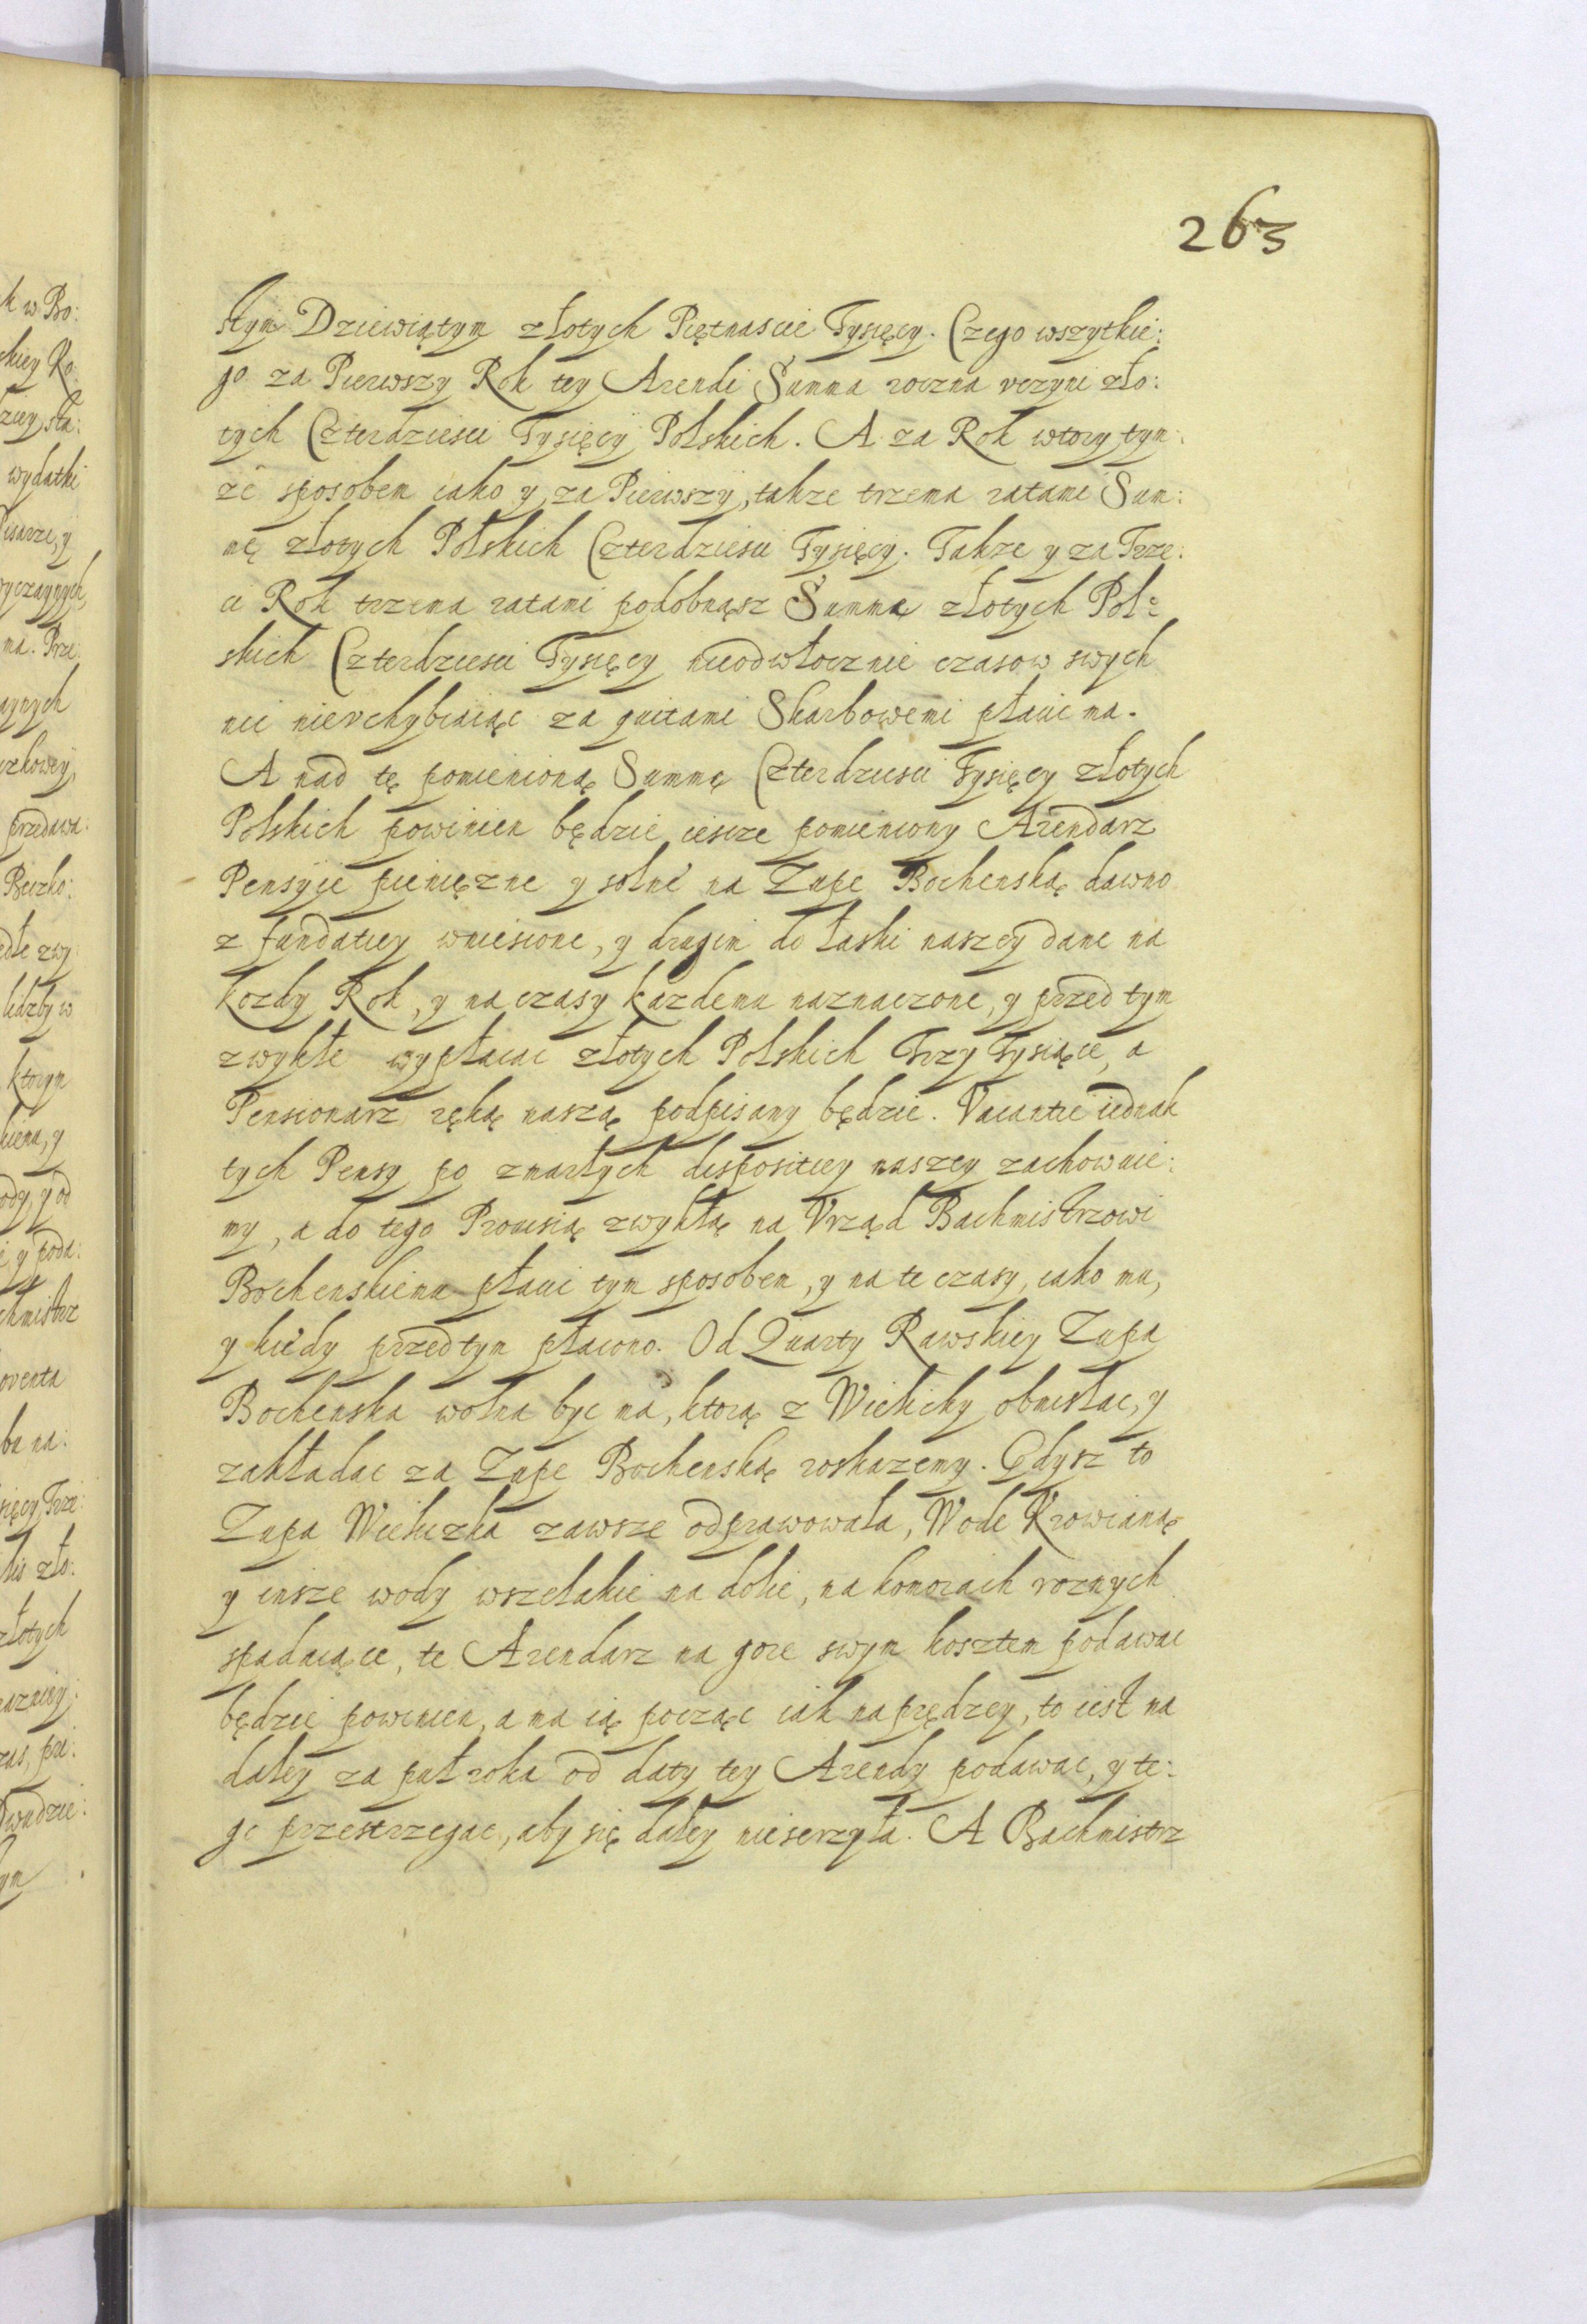 263
stym Dziewiątym złotych Piętnascie Tysięcy. Czego wszytkie:
go za Pierwszy Rok tey Arendi Summa roczna vczyni zło:
tych Czterdziesci Tysięcy Polskich. A za Rok wtory tym:
że sposobem iako y za Pierwszy, takze trzema ratami Sum:
mę złotych Polskich Czterdziesci Tysięcy. Takze y za Trze:
ci Rok trzema ratami podobnąsz Summę złotych Pol:
skich Czterdziesci Tysięcy nieodwłocznie czasow swych
nic nievchybiaiąc za quitami Skarbowemi płacic ma.
A nad tę pomienioną Summę Czterdziesci Tysięcy złotych
Polskich powinien będzie iescze pomieniony Arendarz
Pensyie pieniężne y solne na Zupę Bochenską dawno
z fundatiey wniesione, y drugim do łaski naszey dane na
kozdy Rok, y na czasy kazdemu naznaczone, y przed tym
zwykłe wypłacac złotych Polskich Trzy Tysiące, a
Pensionarz ręką naszą podpisany będzie. Vacantie iednak
tych Pensy po zmarłych dispositiey naszey zachowuie:
my, a do tego Prouisią zwykłą na Vrząd Bachmistrzowi
Bochenskiemu płacic tym sposobem, y na te czasy, iako mu,
y kiedy przedtym płacono. Od Quarty Rawskiey Zupa
Bochenska wolna byc ma, ktorą z Wieliczky obmyslac, y
zakładac za Zupę Bochenską roskazemy. Gdysz to
Zupa Wieliczka zawsze odprawowała, Wodę Krowianą
y insze wody wszelakie na dole, na komorach roznych
spadaiące, te Arendarz na gore swym kosztem podawac
będzie powinien, a ma ią począc iak naprędzey, to iest na
daley za puł roka od daty tey Arendy podawac, y te:
go przestrzegac, aby się daley nieserzyła. A Bachmistrz
k w Bo:
skiey Ro:
wydatki
Pisarze, y
ma. Prze:
przedawa:
Beczko:
ktorym
y poda:
chmistrz
złotych